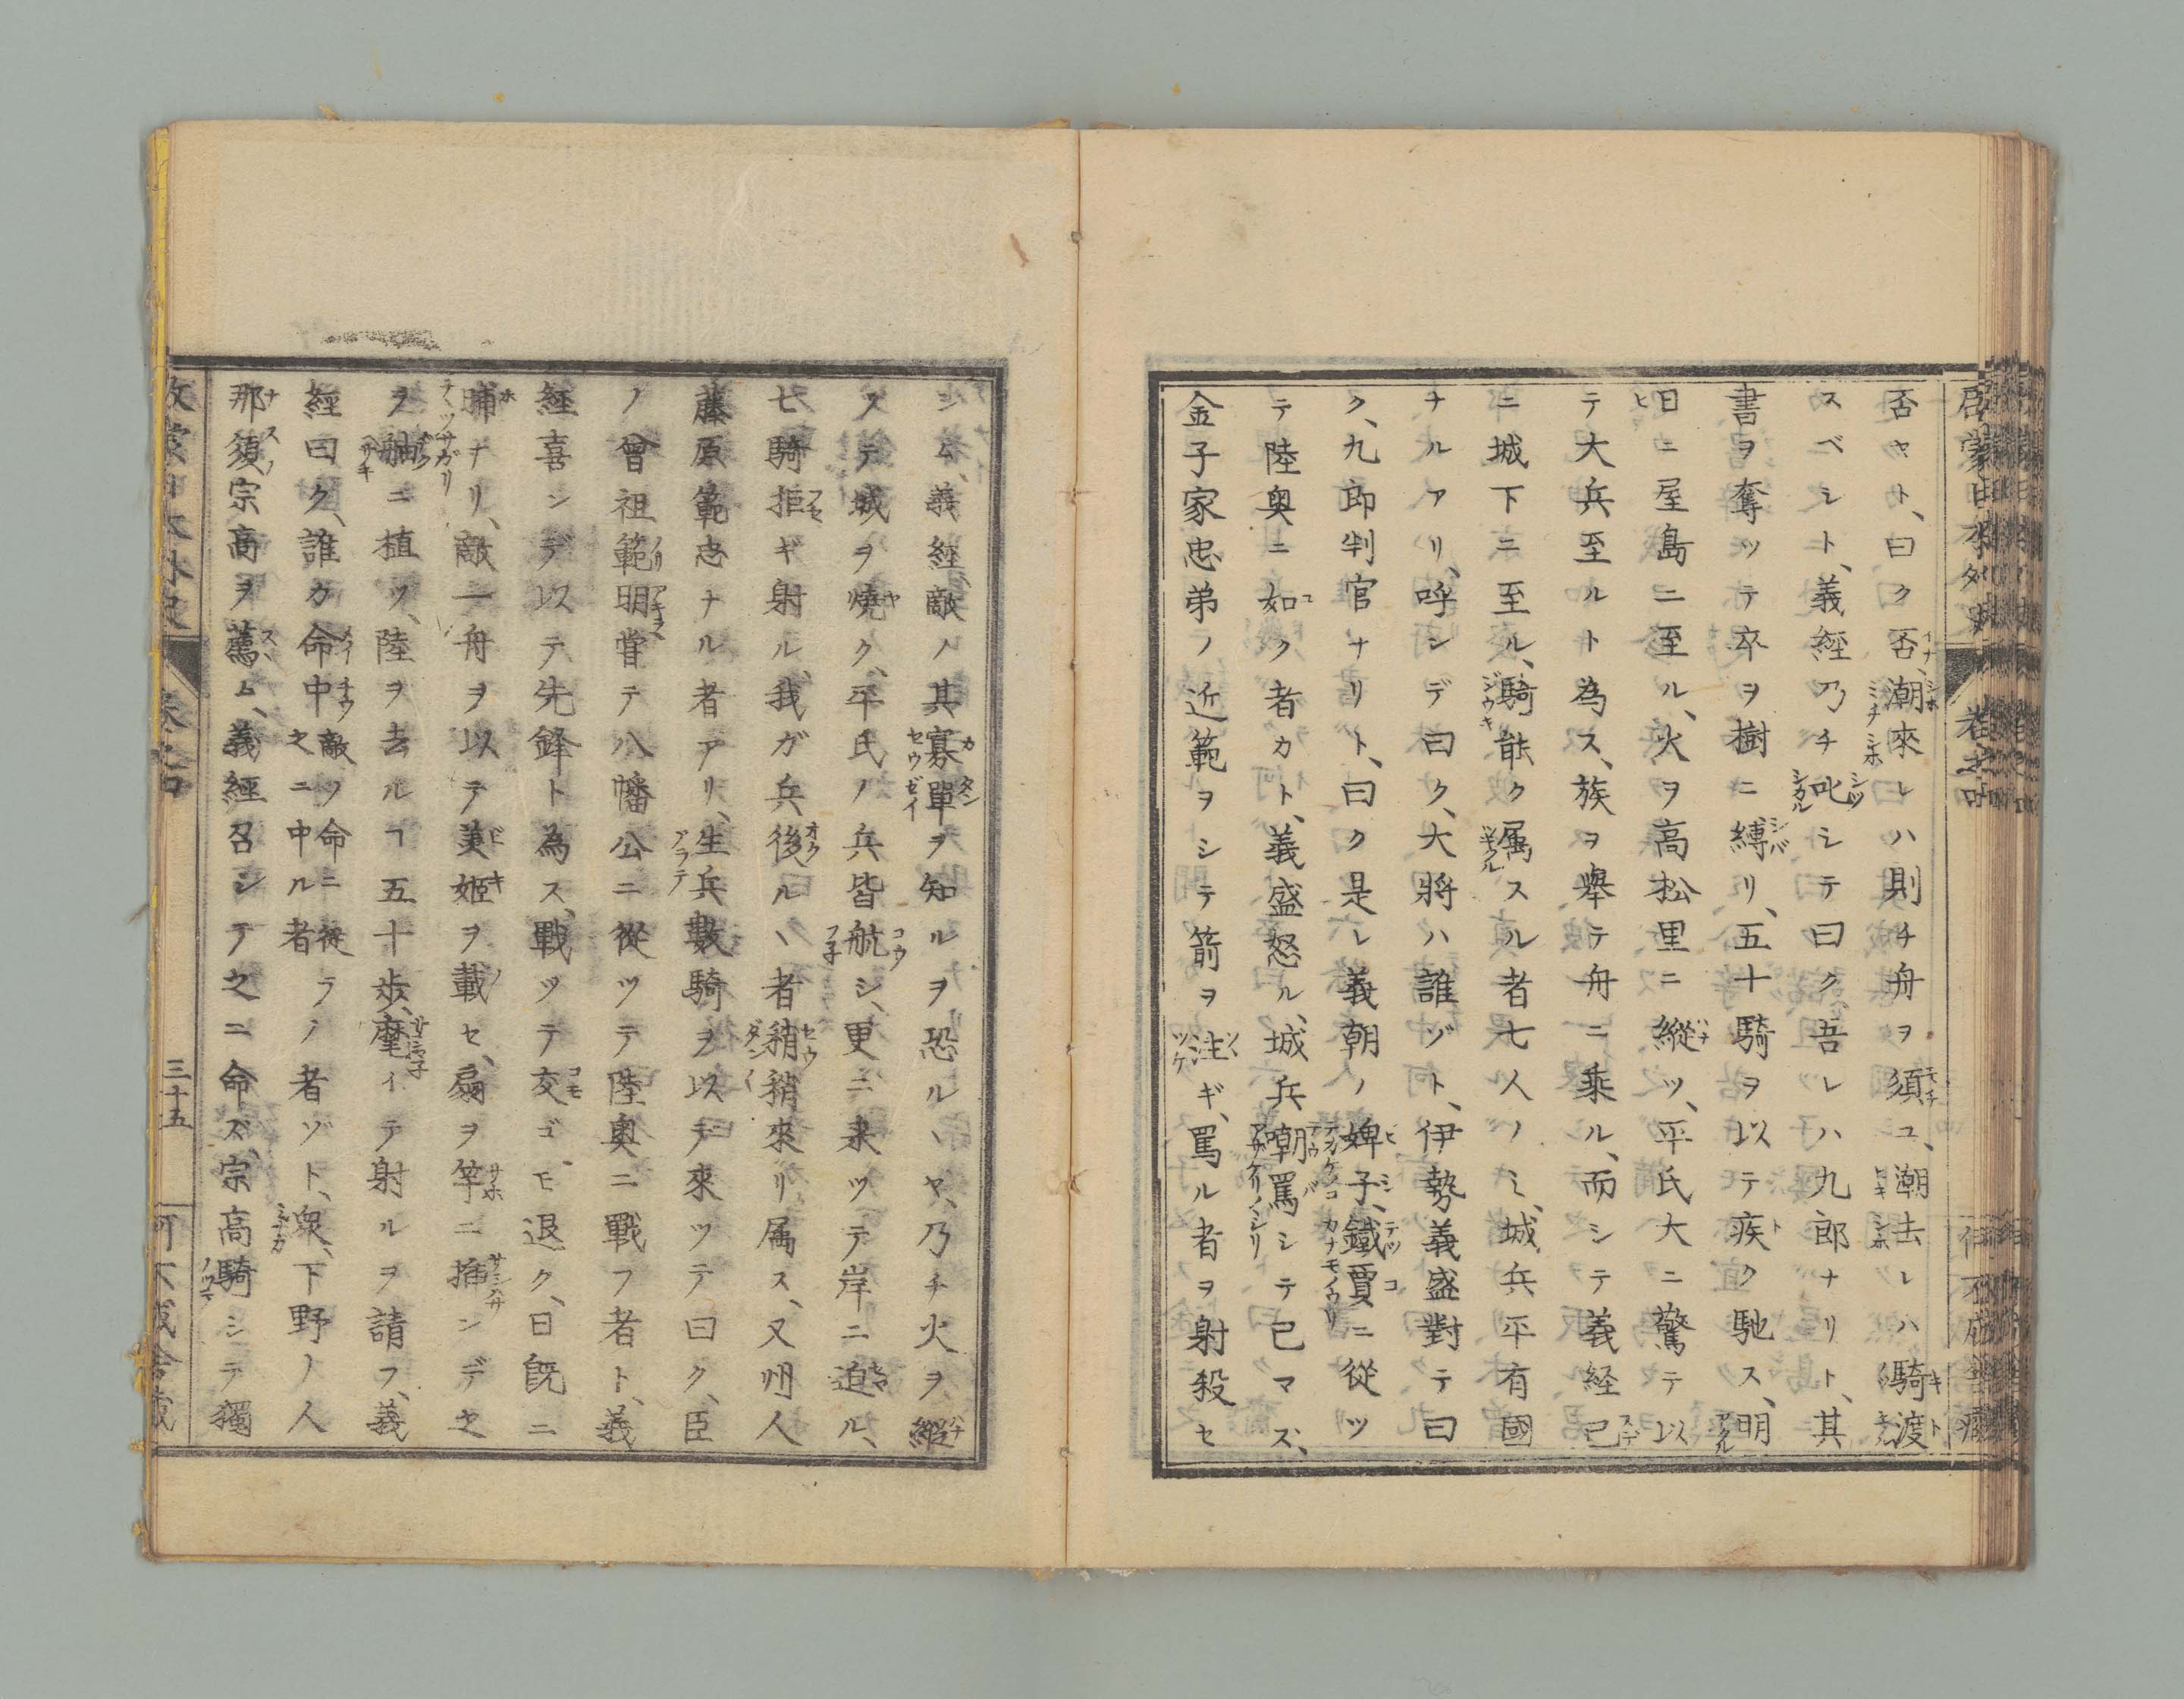 否ヤト、曰ク否、潮來レハ則チ舟ヲ須ユ、潮去レハ騎渡
スベシト、義經乃チ叱シテ曰ク、吾レハ九郎ナリト、其
書ヲ奪ツテ卒ヲ樹ニ縛リ、五十騎ヲ以テ疾ク馳ス、明
日ニ屋島ニ至ル、火ヲ高松里ニ縱ツ、平氏大ニ驚テ以
テ大兵至ルト為ス、族ヲ舉テ舟ニ乘ル、而シテ義経已
ニ城下ニ至ル、騎能ク属スル者七人ノミ、城兵平有國
ナルアリ、呼ンデ曰ク、大將ハ誰ゾト、伊勢義盛對テ曰
ク、九郎判官ナリト、曰ク是レ義朝ノ婢子、鐵賈ニ從ツ
テ陸奥ニ如ク者カト、義盛怒ル、城兵嘲罵シテ已マズ、
金子家忠弟ノ近範ヲシテ箭ヲ注ギ、罵ル者ヲ射殺セ
シム、義經敵ノ其寡單ヲ知ルヲ恐ルヽヤ、乃チ火ヲ縱
ステ城ヲ燒ク、平氏ノ兵皆航シ、更ニ来ツテ岸ニ迫ル、
七騎拒ギ射ル、我ガ兵後ルヽ者稍稍來リ属ス、又州人
藤原範忠ナル者アリ、生兵數騎ヲ以デ來ツテ曰ク、臣
ノ曾祖範明甞テ八幡公ニ從ツテ陸奥ニ戰フ者ト、義
經喜シデ以テ先鋒ト為ス、戰ツテ交ゴモ退ク、日既ニ
晡ナリ、敵一舟ヲ以テ美姫ヲ載セ、扇ヲ竿ニ插ンデ之
ヲ舳ニ植ツ、陸ヲ去ルヿ五十歩、麾イテ射ルヲ請フ、義
經曰ク、誰カ命中敵ノ命ニ従ラノ之ニ中ル者者ゾト、衆、下野ノ人
那須宗高ヲ薦ム、義經召シテ之ニ命ズ、宗高騎シテ獨
三十五